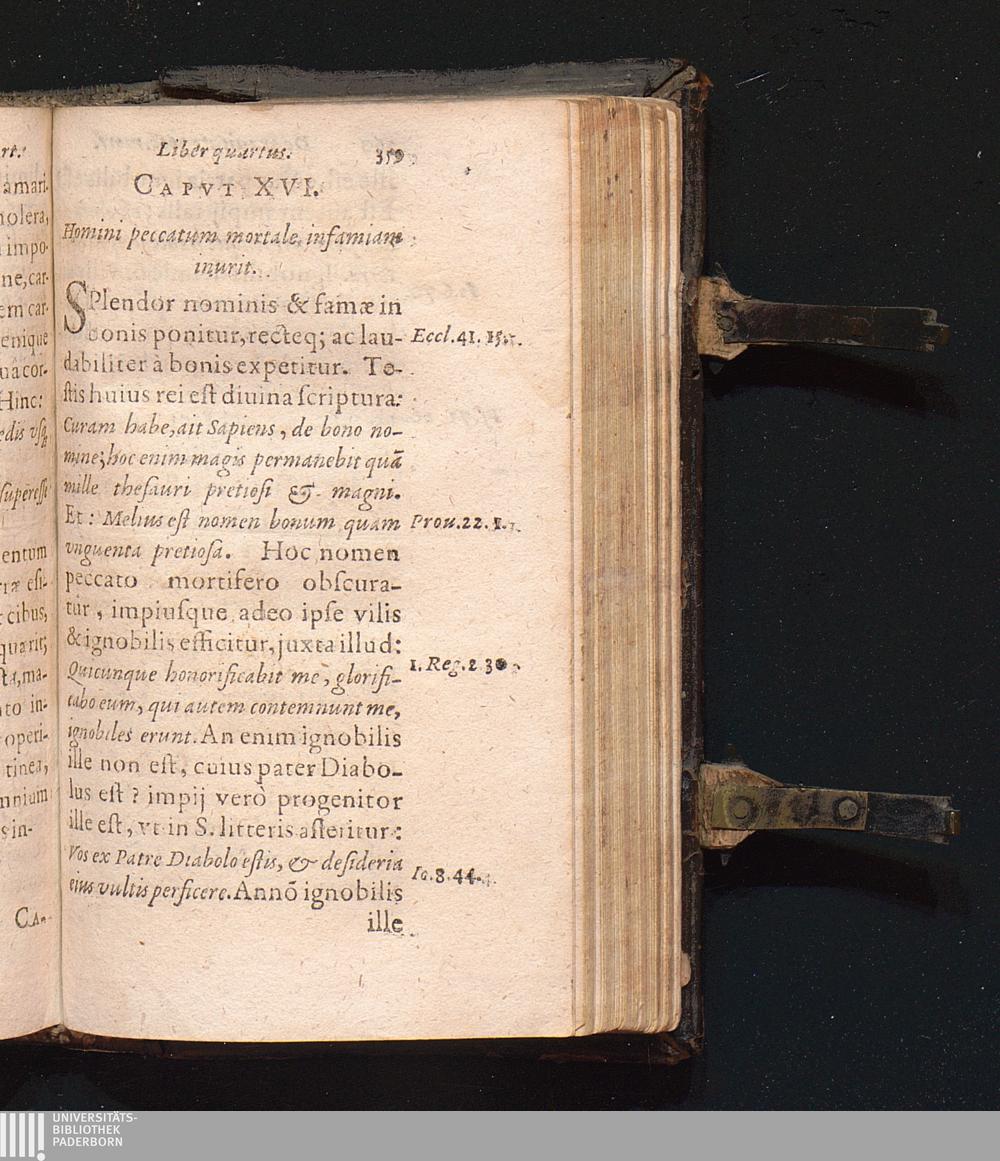 rt.
amari.
holera,
impo-
ne, car-
em car-
enique
uâ cor-
Hinc:
edis vsq;
superess
entum
riæ esi-
cibus,
quarit;
sta, ma-
to in-
operi-
tinea,
mnium
s in-
CA-
Liber quartus. 359
CAPVT XVI.
Homini peccatum mortale infamiam
inurit.
SPlendor nominis & famæ in
bonis ponitur, recteq; ac lau- Eccl. 41. 15.
dabiliter à bonis expetitur. Te-
stis huius rei est diuina scriptura:
Curam habe, ait Sapiens, de bono no-
mine; hoc enim magis permanebit quã
mille thesauri pretiosi & magni.
Et: Melius est nomen bonum quam Prou. 22. 1.
vnguenta pretiosa. Hoc nomen
peccato mortifero obscura-
tur, impiusque adeo ipse vilis
& ignobilis efficitur, juxta illud:
Quicunque honorificabit me, glorifi- 1. Reg. 2 30
cabo eum, qui autem contemnunt me,
ignobiles erunt. An enim ignobilis
ille non est, cuius pater Diabo-
lus est? impij verò progenitor
ille est, vt in S. litteris asseritur:
Vos ex Patre Diabolo estis, & desideria Io. 8. 44.
eius vultis perficere. Annõ ignobilis
ille
UNIVERSITÄTS-
BIBLIOTHEK
PADERBORN